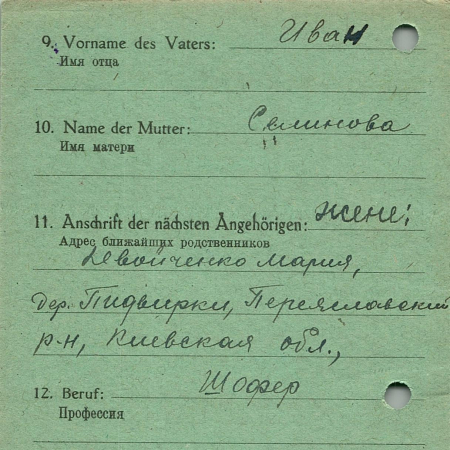 9. Vorname des Vaters: Иван
Имя отца
10. Name der Mutter: Семинова
Имя матери
11. Anschrift der nächsten Angehörigen: жене:
Адрес ближайших родственников
Девойченко Мария,
дер. Пидвирки, Переяславский
р-н, Киевская обл.,
12. Beruf: Шофер
Профессия